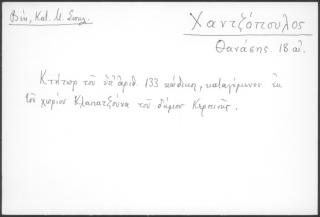 Βέη, Κατ. Μ. Σπηλ.
Χαντζόπουλος
Θανάσης. 18 αἰ.
Κτήτωρ τοῦ ὑπ' ἀριθ. 133 κώδικος, καταγόμενος ἐκ
τοῦ χωρίου Κλαπατζούνα τοῦ δήμου Κερπινῆς.